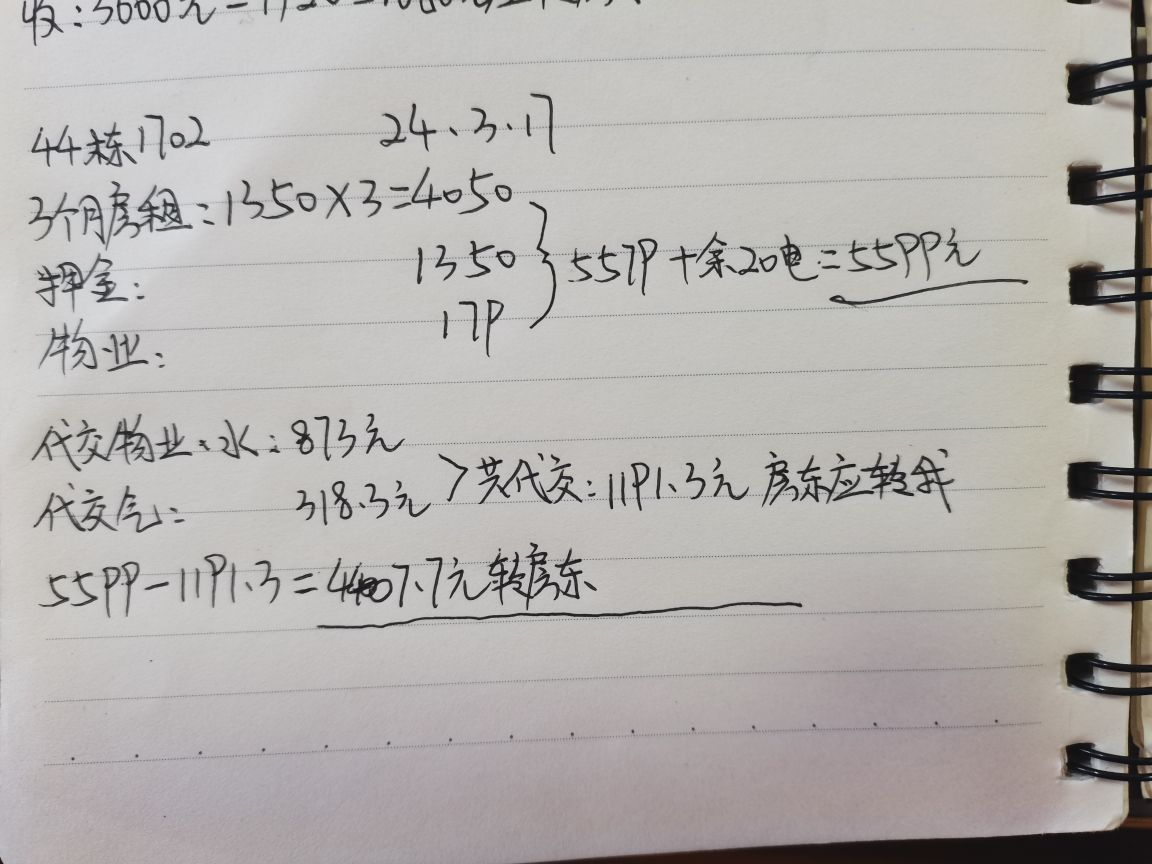 收:3600元-1920=1680元
44栋1702 24.3.17
3个月房租:1350×3=4050
押金: 1350 } 5579+余20电=5599元
物业: 179
代交物业、水:873元
代交气: 318.3元 >共代交:1191.3元 房东应转我
5599-1191.3=4407.7元转房东